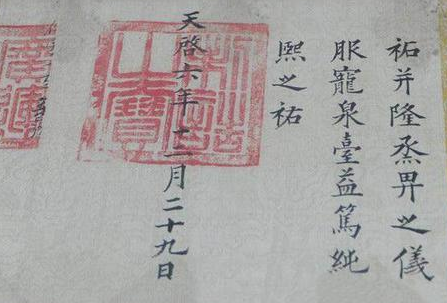 祐并隆烝畀之儀
服寵泉臺益篤純
熙之祐
天啓六年十二月二十九日
制誥之寶